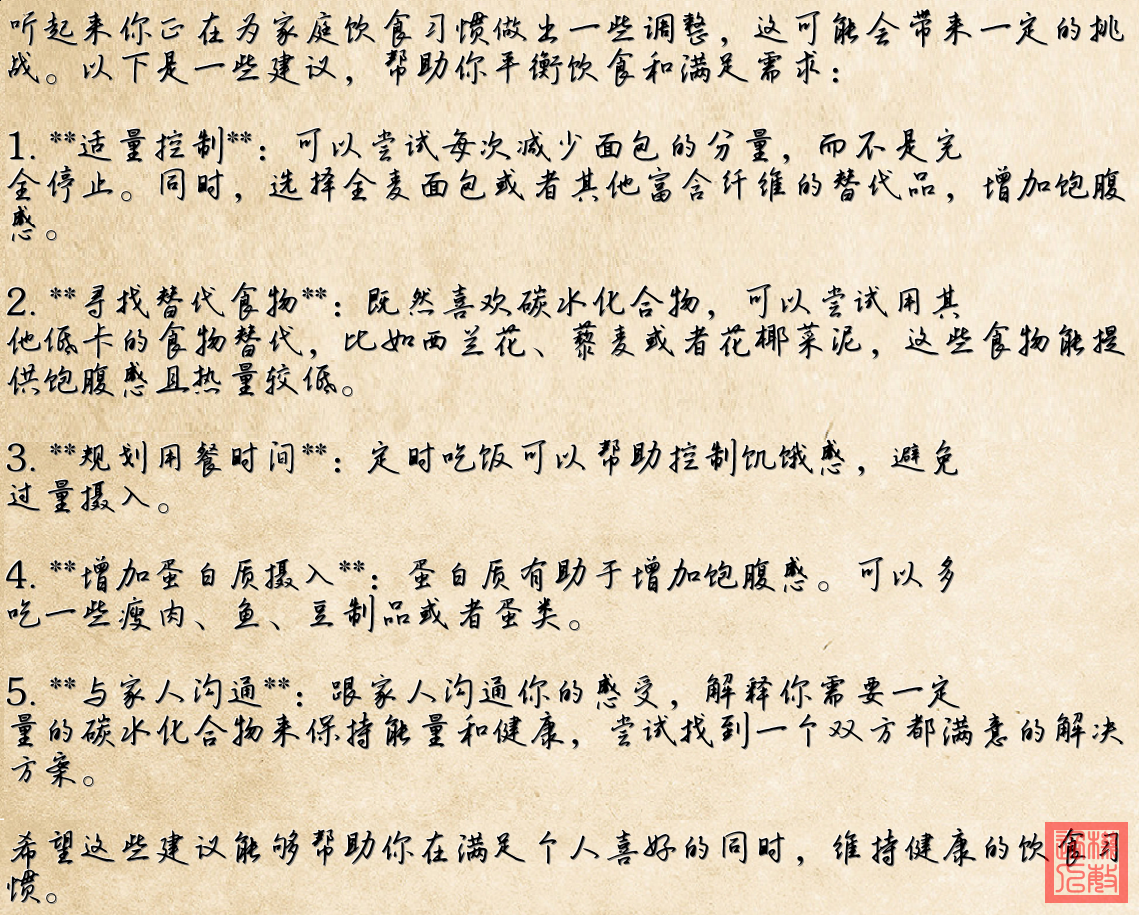 听起来你正在为家庭饮食习惯做出一些调整，这可能会带来一定的挑
战。以下是一些建议，帮助你平衡饮食和满足需求：
1. **适量控制**：可以尝试每次减少面包的分量，而不是完
全停止。同时，选择全麦面包或者其他富含纤维的替代品，增加饱腹
感。
2. **寻找替代食物**：既然喜欢碳水化合物，可以尝试用其
他低卡的食物替代，比如西兰花、藜麦或者花椰菜泥，这些食物能提
供饱腹感且热量较低。
3. **规划用餐时间**：定时吃饭可以帮助控制饥饿感，避免
过量摄入。
4. **增加蛋白质摄入**：蛋白质有助于增加饱腹感。可以多
吃一些瘦肉、鱼、豆制品或者蛋类。
5. **与家人沟通**：跟家人沟通你的感受，解释你需要一定
量的碳水化合物来保持能量和健康，尝试找到一个双方都满意的解决
方案。
希望这些建议能够帮助你在满足个人喜好的同时，维持健康的饮食习
惯。